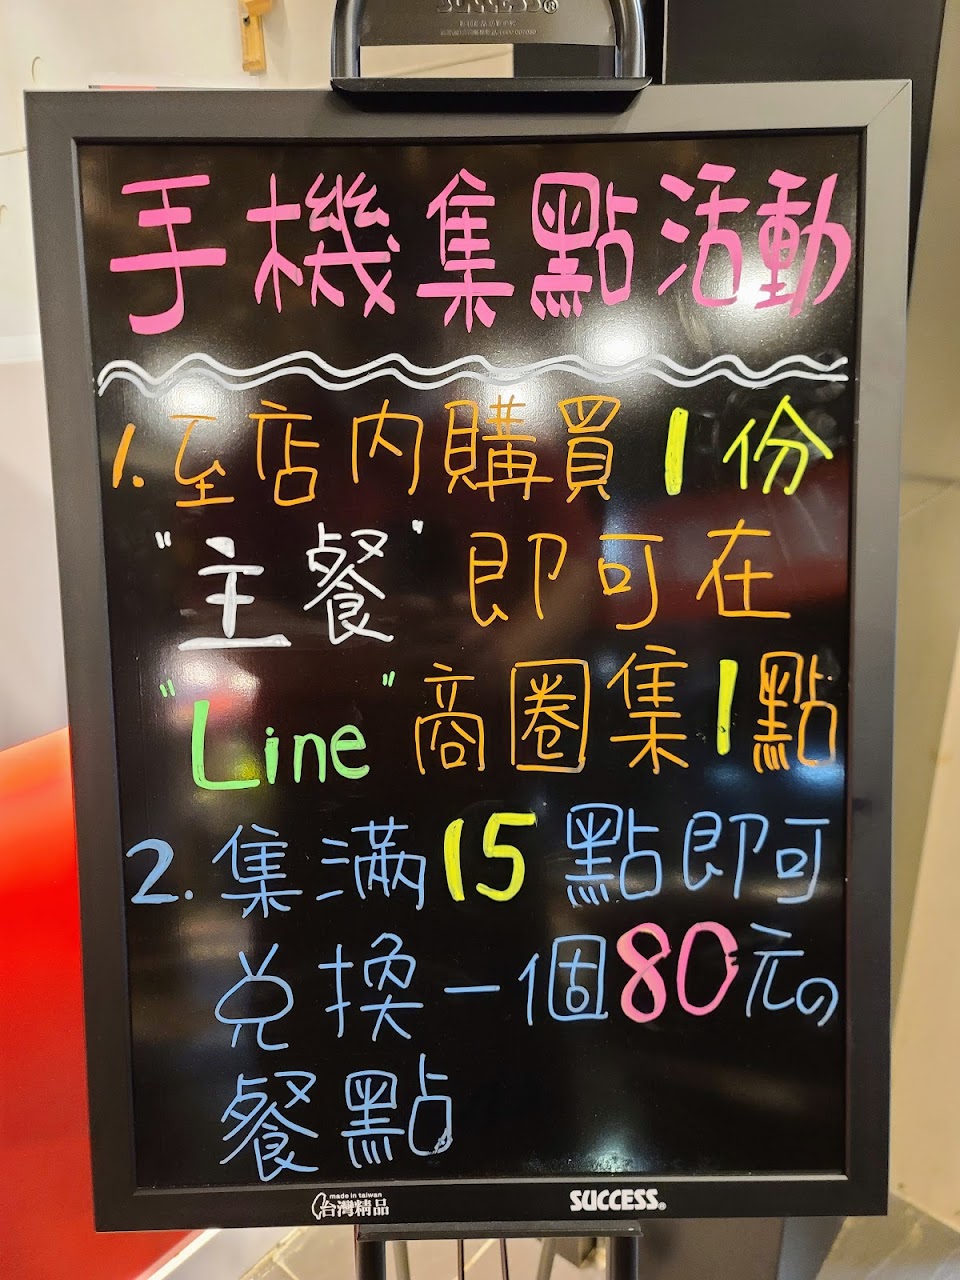 SUCCESS®
手機集點活動
1.至店內購買1份
"主餐"即可在
"Line"商圈集1點
2.集滿15點即可
兌換一個80元の
餐點
made in taiwan
台灣精品
SUCCESS®